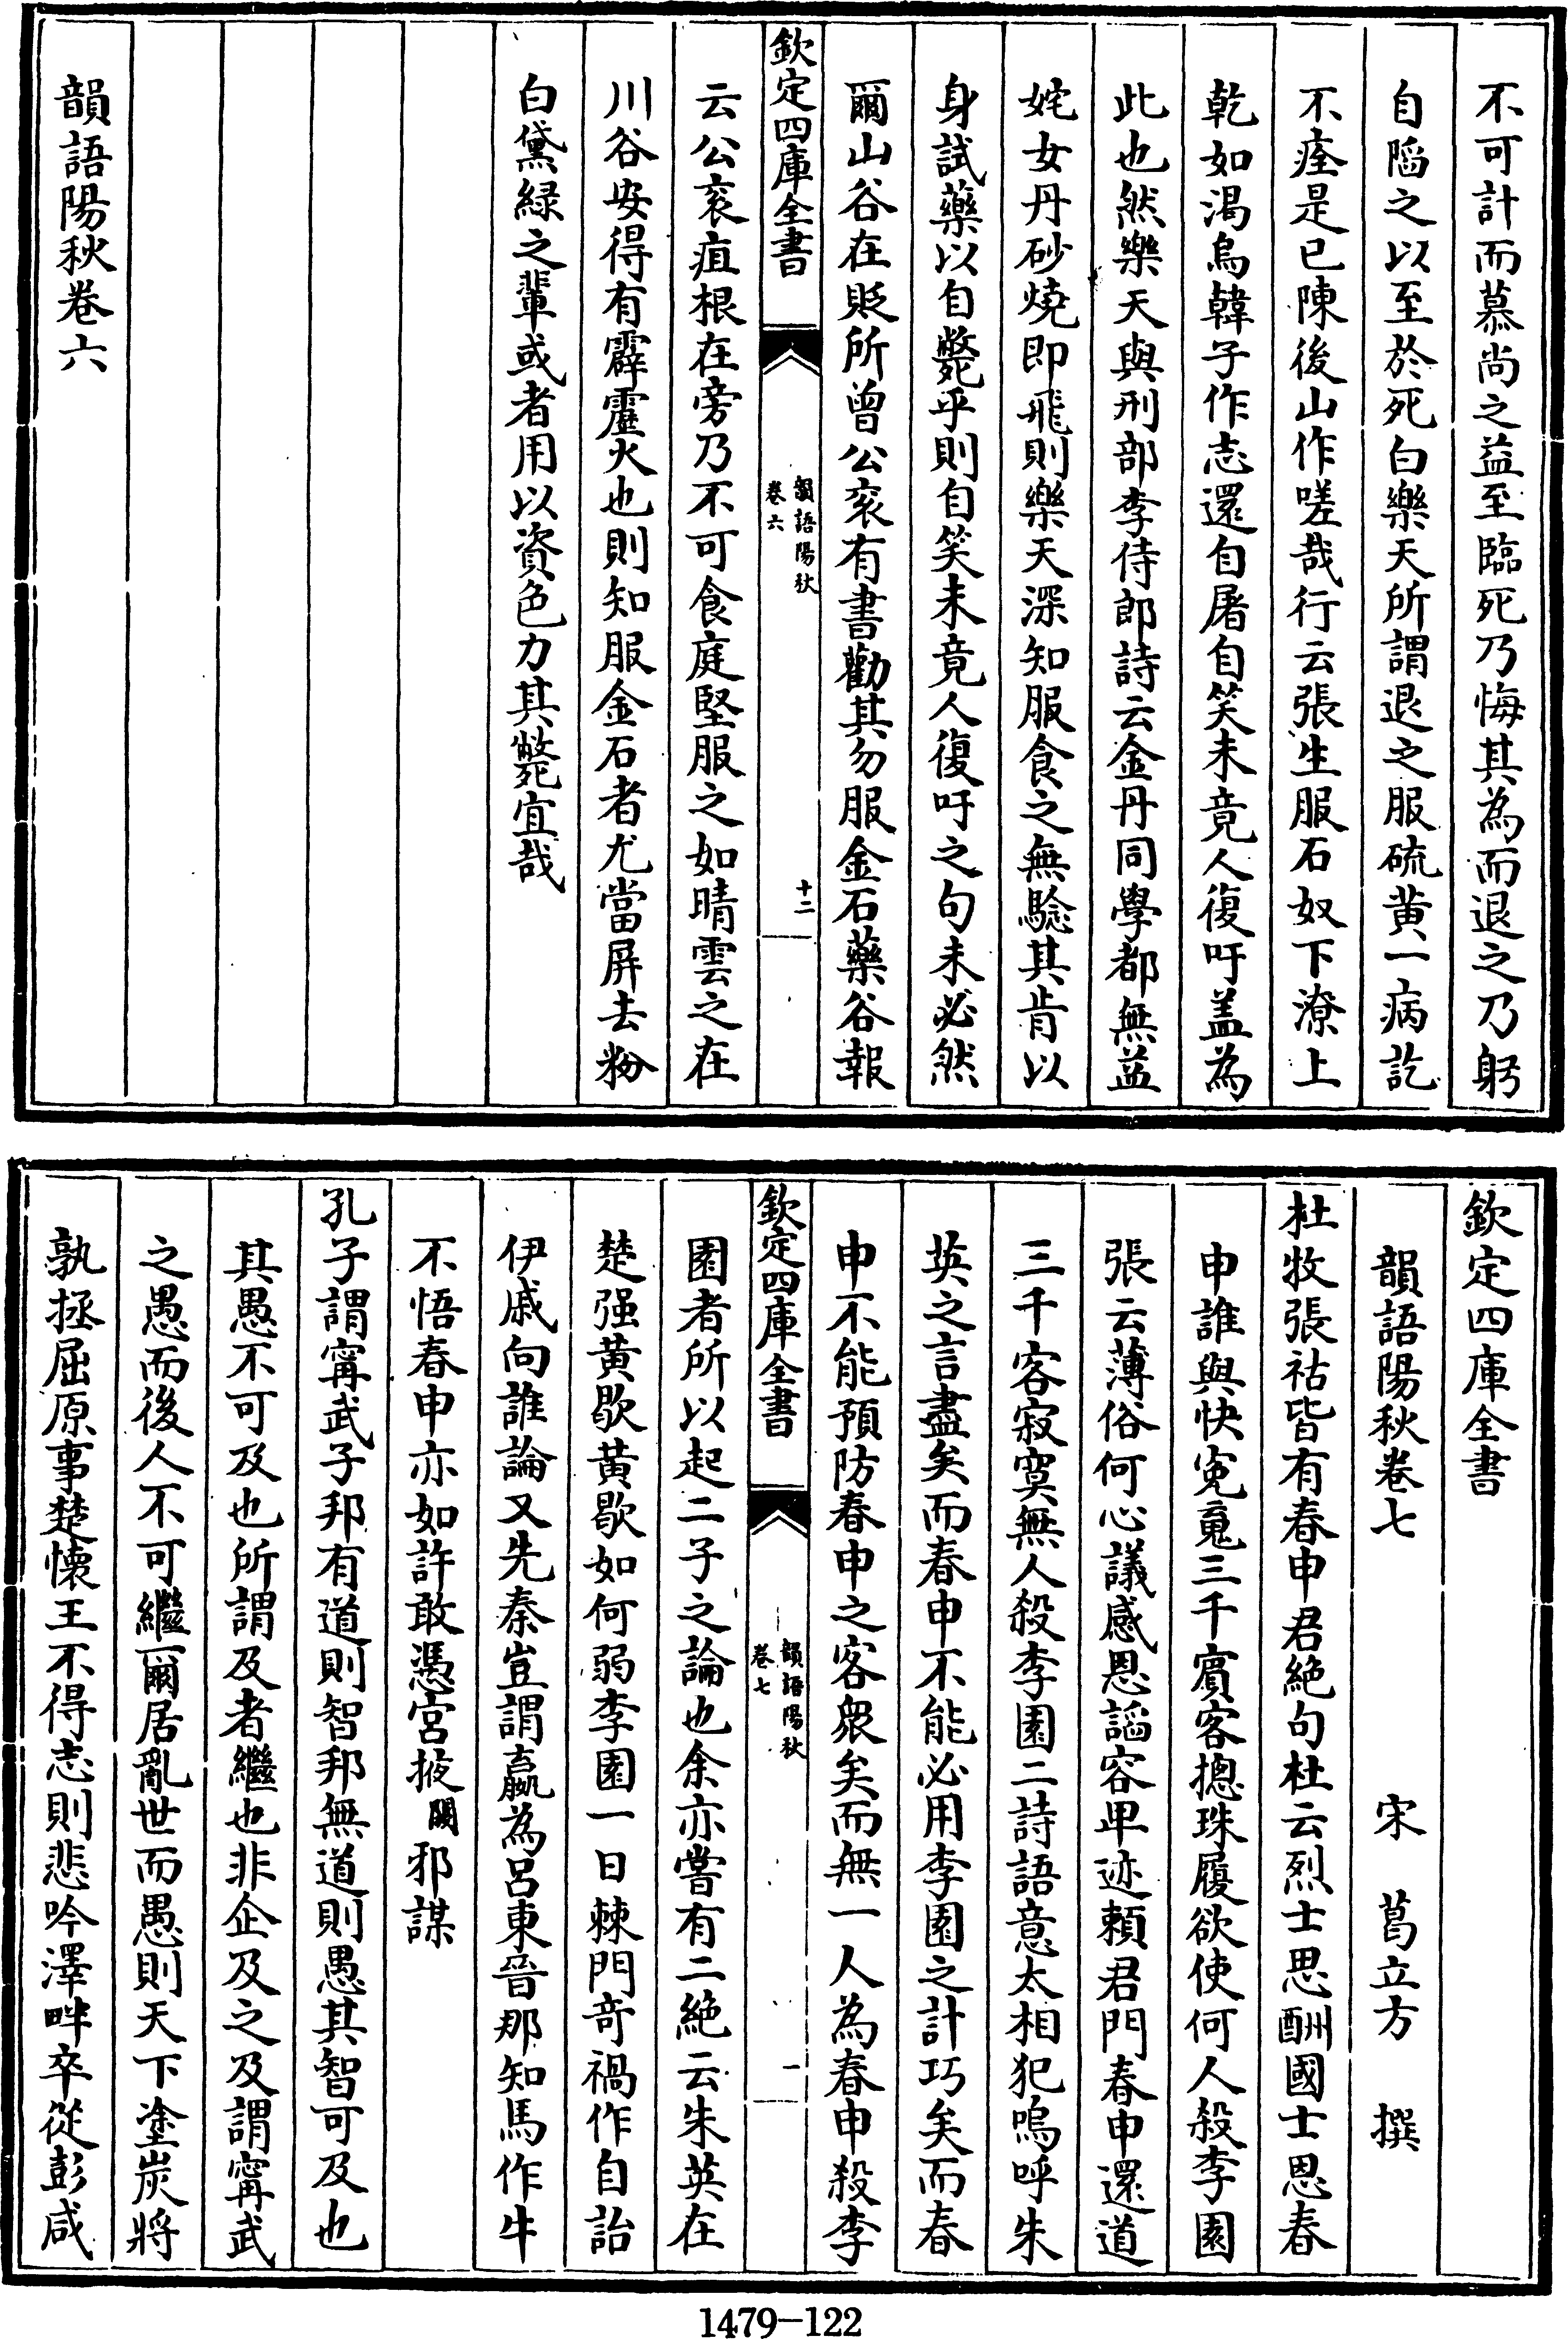 不可計而慕尚之益至臨死乃悔其為而退之乃躬
自陷之以至於死白樂天所謂退之服硫黄一病訖
不痊是已陳後山作嗟哉行云張生服石奴下潦上
乾如渴烏韓子作志還自屠自笑未竟人復吁盖為
此也然樂天與刑部李侍郎詩云金丹同學都無益
姹女丹砂燒即飛則樂天深知服食之無騐其肯以
身試藥以自斃乎則自笑未竟人復吁之句未必然
爾山谷在貶所曾公衮有書勸其勿服金石藥谷報
欽定四庫全書
韻語陽秋
卷六
十二
云公衮疽根在旁乃不可食庭堅服之如晴雲之在
川谷安得有霹靂火也則知服金石者尤當屏去粉
白黛緑之輩或者用以資色力其斃宜哉
韻語陽秋卷六
欽定四庫全書
韻語陽秋卷七
宋 葛立方 撰
杜牧張祜皆有春申君絶句杜云烈士思酬國士恩春
申誰與快寃䰟三千賔客揔珠履欲使何人殺李園
張云薄俗何心議感恩謟容卑迹頼君門春申還道
三千客寂寞無人殺李園二詩語意太相犯嗚呼朱
英之言盡矣而春申不能必用李園之計巧矣而春
申不能預防春申之客衆矣而無一人為春申殺李
欽定四庫全書
韻語陽秋
卷七
一
園者所以起二子之論也余亦嘗有二絶云朱英在
楚强黄歇黄歇如何弱李園一日棘門竒禍作自詒
伊戚向誰論又先秦豈謂嬴為吕東晉那知馬作牛
不悟春申亦如許敢憑宫掖闕邪謀
孔子謂甯武子邦有道則智邦無道則愚其智可及也
其愚不可及也所謂及者繼也非企及之及謂甯武
之愚而後人不可繼爾居亂世而愚則天下塗炭將
孰拯屈原事楚懷王不得志則悲吟澤畔卒從彭咸
1479-122